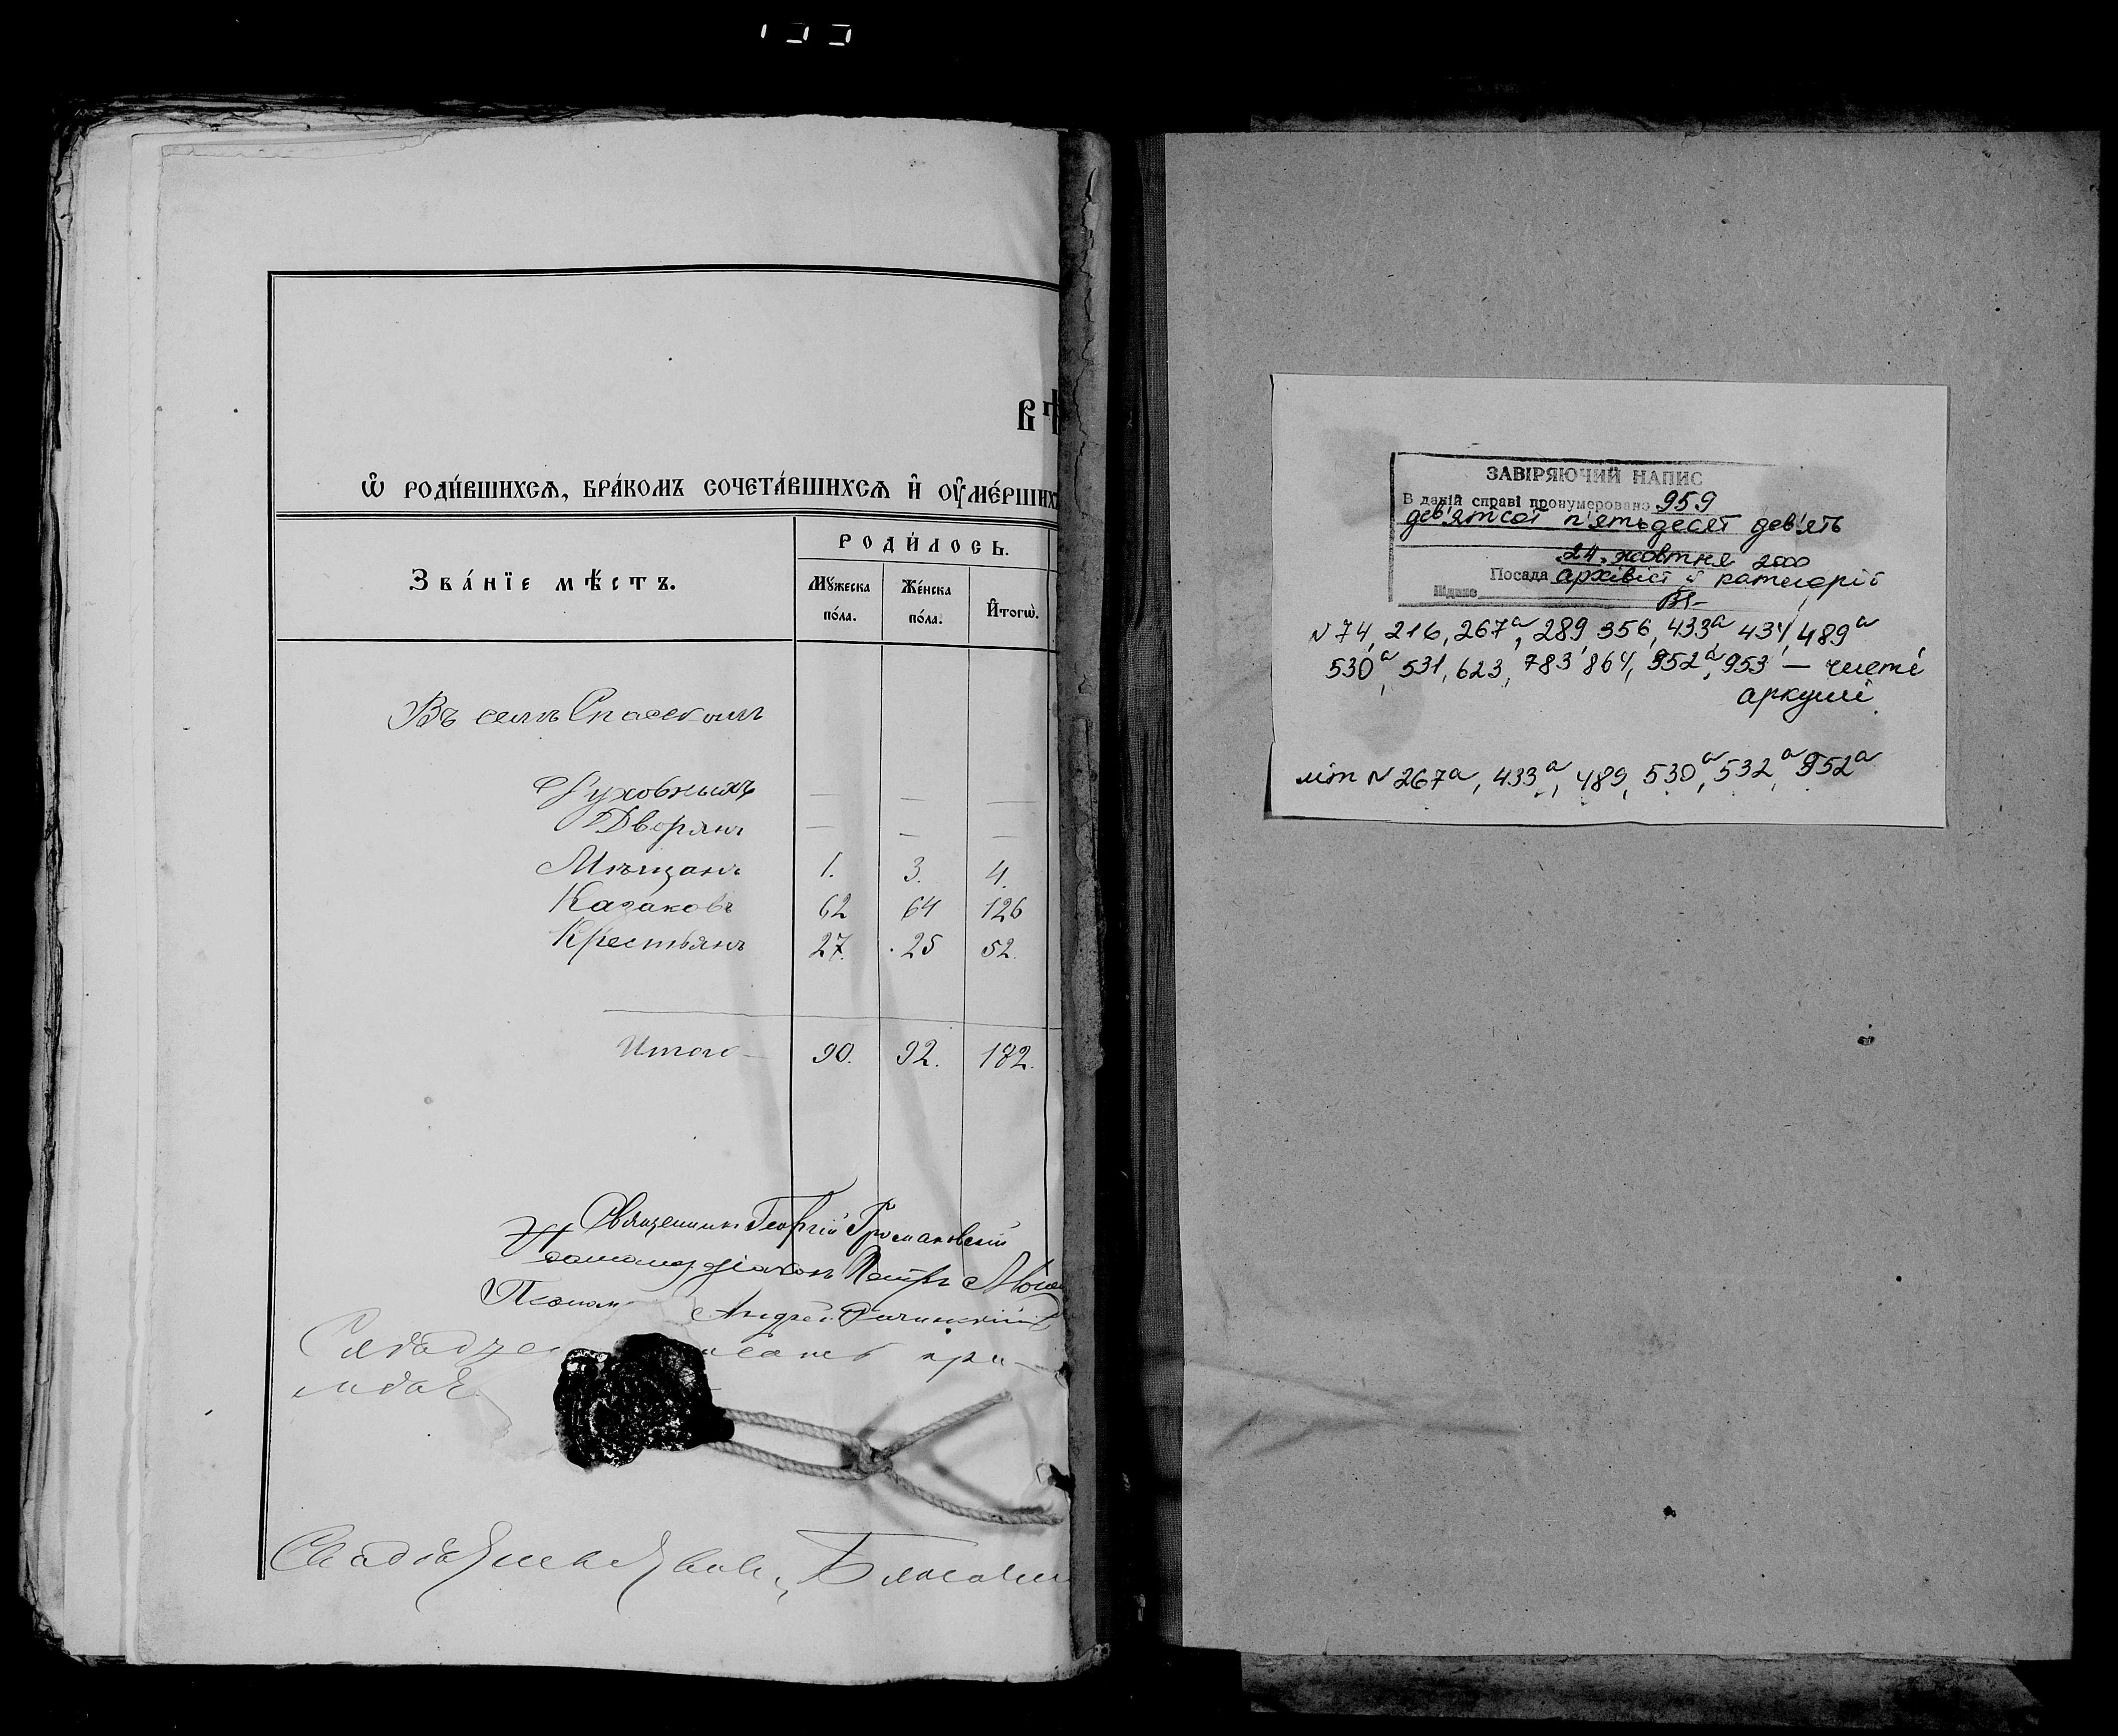 ВѢ
Ѡ҆ РОДИ́ВШИХСѦ, БРА́КОМЪ СОЧЕТА́ВШИХСѦ И҆ ОУ҆МЕ́РШИХЪ
ЗВА́НЇЕ МѢ́СТЪ.
РОДИ́ЛОСЬ.
МꙊ́ЖЕСКА ПО́ЛА.
ЖЕ́НСКА ПО́ЛА.
И҆ТОГѠ̀.
Въ селѣ Спасскомъ
Духовныхъ — — —
Дворянъ — — —
Мѣщанъ 1. 3. 4.
Казаковъ 62 64 126
Крестьянъ 27. 25 52.
Итого — 90. 92. 182.
Священникъ Георгій Громаковскій
діаконъ Петръ
Псалом Андрей
ЗАВІРЯЮЧИЙ НАПИС
В даній справі пронумеровано 959
дев'ятсот п'ятьдесят дев'ять
24. жовтня 2000
Посада архівіст ІІ категорії
Підпис
N 74, 216, 267а, 289, 356, 433а, 434, 489а
530а, 531, 623, 783, 864, 952а, 953 — чисті
аркуші
літ N 267а, 433а, 489, 530а, 532а, 952а